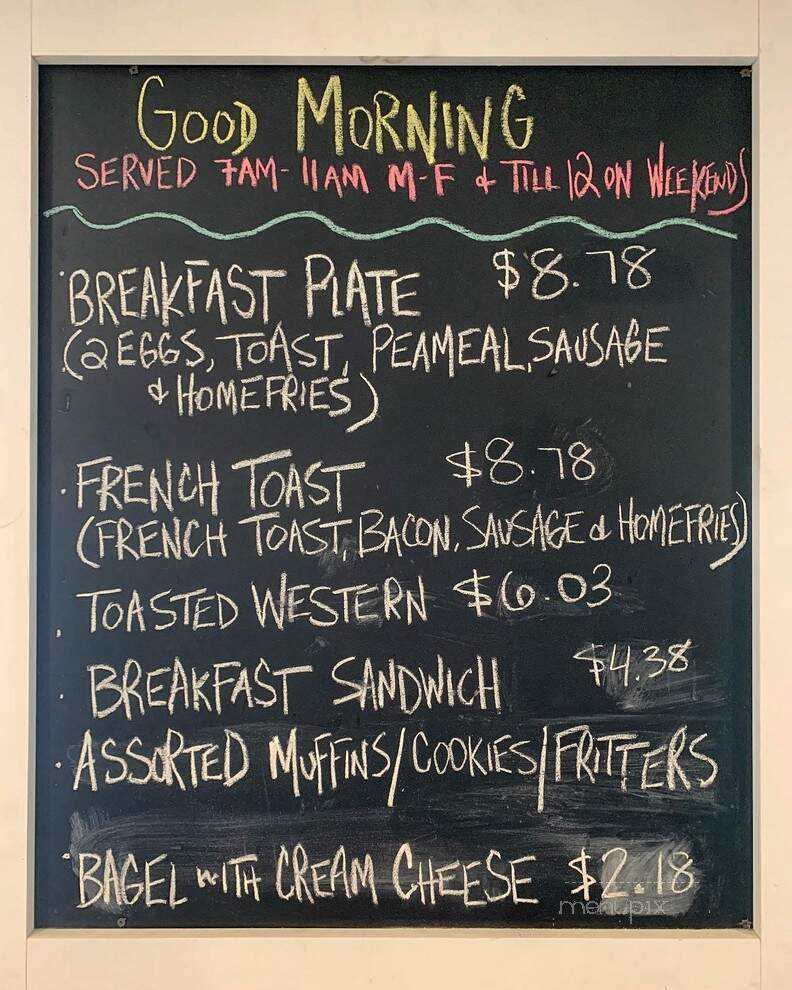 GOOD MORNING
SERVED 7AM-11AM M-F & TILL 12 ON WEEKENDS
·BREAKFAST PLATE $8.78
(2 EGGS, TOAST, PEAMEAL, SAUSAGE
& HOMEFRIES)
·FRENCH TOAST $8.78
(FRENCH TOAST, BACON, SAUSAGE & HOMEFRIES)
·TOASTED WESTERN $6.03
·BREAKFAST SANDWICH $4.38
·ASSORTED MUFFINS/COOKIES/FRITTERS
·BAGEL WITH CREAM CHEESE $2.18
menupix